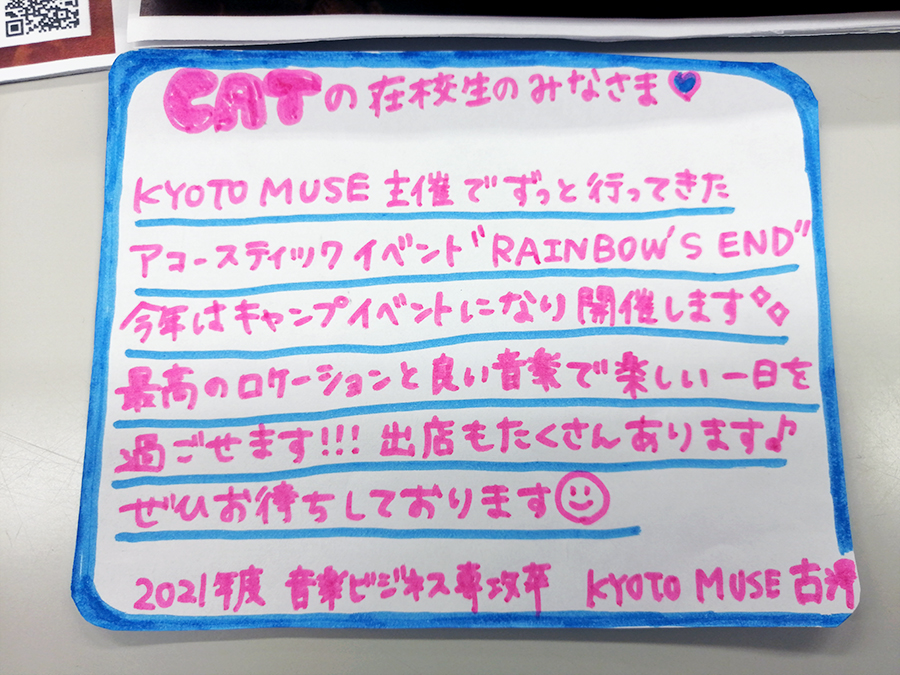 CATの在校生のみなさま
KYOTO MUSE 主催でずっと行ってきた
アコースティックイベント"RAINBOW'S END"
今年はキャンプイベントになり開催します
最高のロケーションと良い音楽で楽しい一日を
過ごせます!!! 出店もたくさんあります♪
ぜひお待ちしております
2021年度 音楽ビジネス専攻卒 KYOTO MUSE